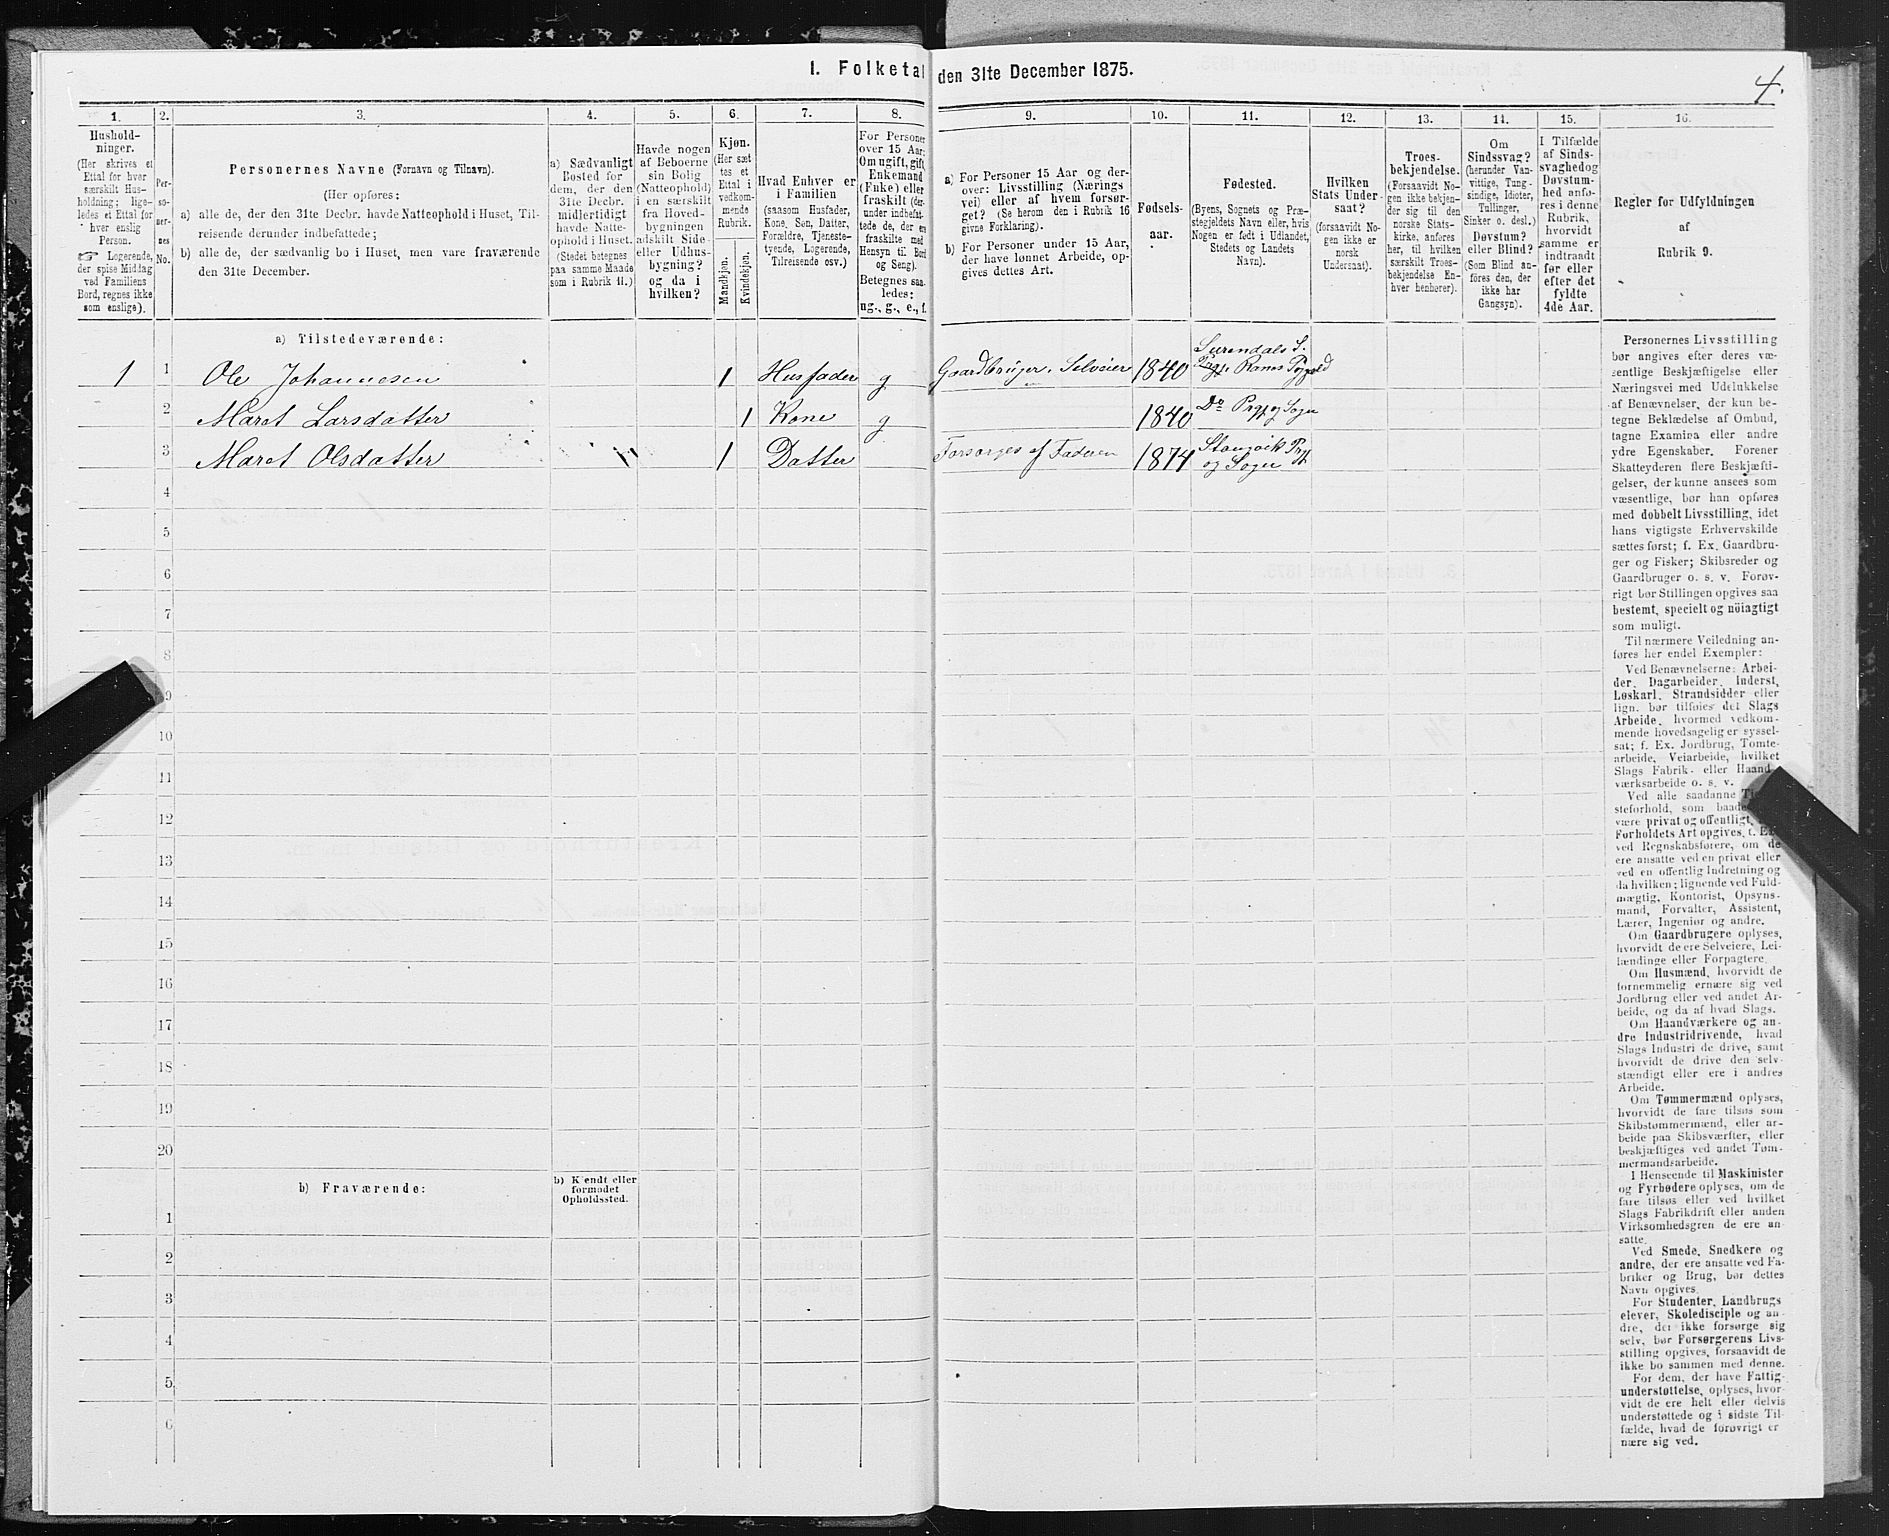 1. Folketal den 31te December 1875.
4.
1.
Hushold-
ninger.
(Her skrives et
Ettal for hver
særskilt Hus-
holdning; lige-
ledes et Ettal for
hver enslig
Person.
☞ Logerende,
der spise Middag
ved Familiens
Bord, regnes ikke
som enslige).
2.
Per-
so-
ner-
nes
No.
3.
Personernes Navne (Fornavn og Tilnavn).
(Her opføres:
a) alle de, der den 31te Decbr. havde Natteophold i Huset, Til-
reisende derunder indbefattede;
b) alle de, der sædvanlig bo i Huset, men vare fraværende
den 31te December.
4.
a) Sædvanligt
Bosted for
dem, der den
31te Decbr.
midlertidigt
havde Natte-
ophold i Huset.
(Stedet betegnes
paa samme Maade
som i Rubrik 11.)
5.
Havde nogen
af Beboerne
sin Bolig
(Natteophold)
i en særskilt
fra Hoved-
bygningen
adskilt Side-
eller Udhus-
bygning?
og da i
hvilken?
6.
Kjøn.
(Her sæt
tes et
Ettal i
vedkom-
mende
Rubrik.
Mandkjøn.
Kvindekjøn.
7.
Hvad Enhver er
i Familien
(saasom Husfader,
Kone, Søn, Datter,
Forældre, Tjeneste-
tyende, Logerende,
Tilreisende osv.)
8.
For Personer
over 15 Aar:
Om ugift, gift,
Enkemand
(Enke) eller
fraskilt (der-
under indbefat-
tede de, der ere
fraskilte med
Hensyn til Bord
og Seng).
Betegnes saa-
ledes:
ug., g., e., f.
9.
a) For Personer 15 Aar og der-
over: Livsstilling (Nærings
vei) eller af hvem forsør-
get? (Se herom den i Rubrik 16
givne Forklaring).
b) For Personer under 15 Aar,
der have lønnet Arbeide, op-
gives dettes Art.
10.
Fødsels-
aar.
11.
Fødested.
(Byens, Sognets og Præ-
stegjeldets Navn eller, hvis
Nogen er født i Udlandet,
Stedets og Landets
Navn).
12.
Hvilken
Stats Under-
saat?
(forsaavidt No-
gen ikke er
norsk
Undersaat).
13.
Troes-
bekjendelse.
(Forsaavidt No-
gen ikke bekjen-
der sig til den
norske Stats-
kirke, anføres
her, til hvilken
særskilt Troes-
bekjendelse En-
hver henhører).
14.
Om
Sindssvag?
(herunder Van-
vittige, Tung-
sindige, Idioter,
Tullinger,
Sinker o. desl.)
Døvstum?
eller Blind?
(Som Blind an-
føres den, der
ikke har
Gangsyn).
15.
I Tilfælde
af Sinds-
svaghed og
Døvstum-
hed anfø-
res i denne
Rubrik,
hvorvidt
samme er
indtraadt
før eller
efter det
fyldte
4de Aar.
16.
Regler for Udfyldningen
af
Rubrik 9.
a) Tilstedeværende:
1 1 Ole Johannesen 1 Husfader g Gaardbruger, Selveier 1840 Surendals S.
Pgj. Ranes
2 Maret Larsdatter 1 Kone g 1840 Do Prgj og Sogn
3 Maret Olsdatter 1 Datter Forsørges af Faderen 1874 Stangvik Prgj
og Sogn
4
5
6
7
8
9
10
11
12
13
14
15
16
17
18
19
20
b) Fraværende:
b) Kjendt eller
formodet
Opholdssted.
1
2
3
4
5
6
Personernes Livsstilling
bør angives efter deres væ-
sentlige Beskjæftigelse eller
Næringsvei med Udelukkelse
af Benævnelser, der kun be-
tegne Beklædelse af Ombud,
tagne Examina eller andre
ydre Egenskaber. Forener
Skatteyderen flere Beskjæfti-
gelser, der kunne ansees som
væsentlige, bør han opføres
med dobbelt Livsstilling, idet
hans vigtigste Erhvervskilde
sættes først; f. Ex. Gaardbru-
ger og Fisker; Skibsreder og
Gaardbruger o. s. v. Forøv-
rigt bør Stillingen opgives saa
bestemt, specielt og nöiagtigt
som muligt.
Til nærmere Veiledning an-
føres her endel Exempler:
Ved Benævnelserne: Arbei-
der, Dagarbeider, Inderst,
Løskarl, Strandsidder eller
lign. bør tilføies det Slags
Arbeide, hvormed vedkom-
mende hovedsagelig er syssel-
sat; f. Ex. Jordbrug, Tomte-
arbeide, Veiarbeide, hvilket
Slags Fabrik- eller Haand-
værksarbeide o. s. v.
Ved alle saadanne
steforhold, som baade
være privat og offentligt,
Forholdets Art opgives, f. Ex.
ved Regnskabsførere, om de
ere ansatte ved en privat eller
ved en offentlig Indretning og
da hvilken; lignende ved Fuld-
mægtig, Kontorist, Opsyns-
mand, Forvalter, Assistent,
Lærer, Ingeniør og andre.
Om Gaardbrugere oplyses,
hvorvidt de ere Selveiere, Lei-
lændinge eller Forpagtere.
Om Husmænd, hvorvidt de
fornemmelig ernære sig ved
Jordbrug eller ved andet Ar-
beide, og da af hvad Slags.
Om Haandværkere og an-
dre Industridrivende, hvad
Slags Industri de drive, samt
hvorvidt de drive den selv-
stændigt eller ere i andres
Arbeide.
Om Tømmermænd oplyses,
hvorvidt de fare tilsøs som
Skibstømmermænd, eller ar-
beide paa Skibsværfter, eller
beskjæftiges ved andet Tøm-
mermandsarbeide.
I Henseende til Maskinister
og Fyrbødere oplyses, om de
fare tilsøs eller ved hvilket
Slags Fabrikdrift eller anden
Virksomhedsgren de ere an-
satte.
Ved Smede, Snedkere og
andre, der ere ansatte ved Fa-
briker og Brug, bør dettes
Navn opgives.
For Studenter, Landbrugs
elever, Skoledisciple og an-
dre, der ikke forsørge sig
selv, bør Forsørgerens Livs-
stilling opgives, forsaavidt de
ikke bo sammen med denne.
For dem, der have Fattig-
understøttelse, oplyses, hvor-
vidt de ere helt eller delvis
understøttede og i sidste Til-
fælde, hvad de forøvrigt er
nære sig ved.